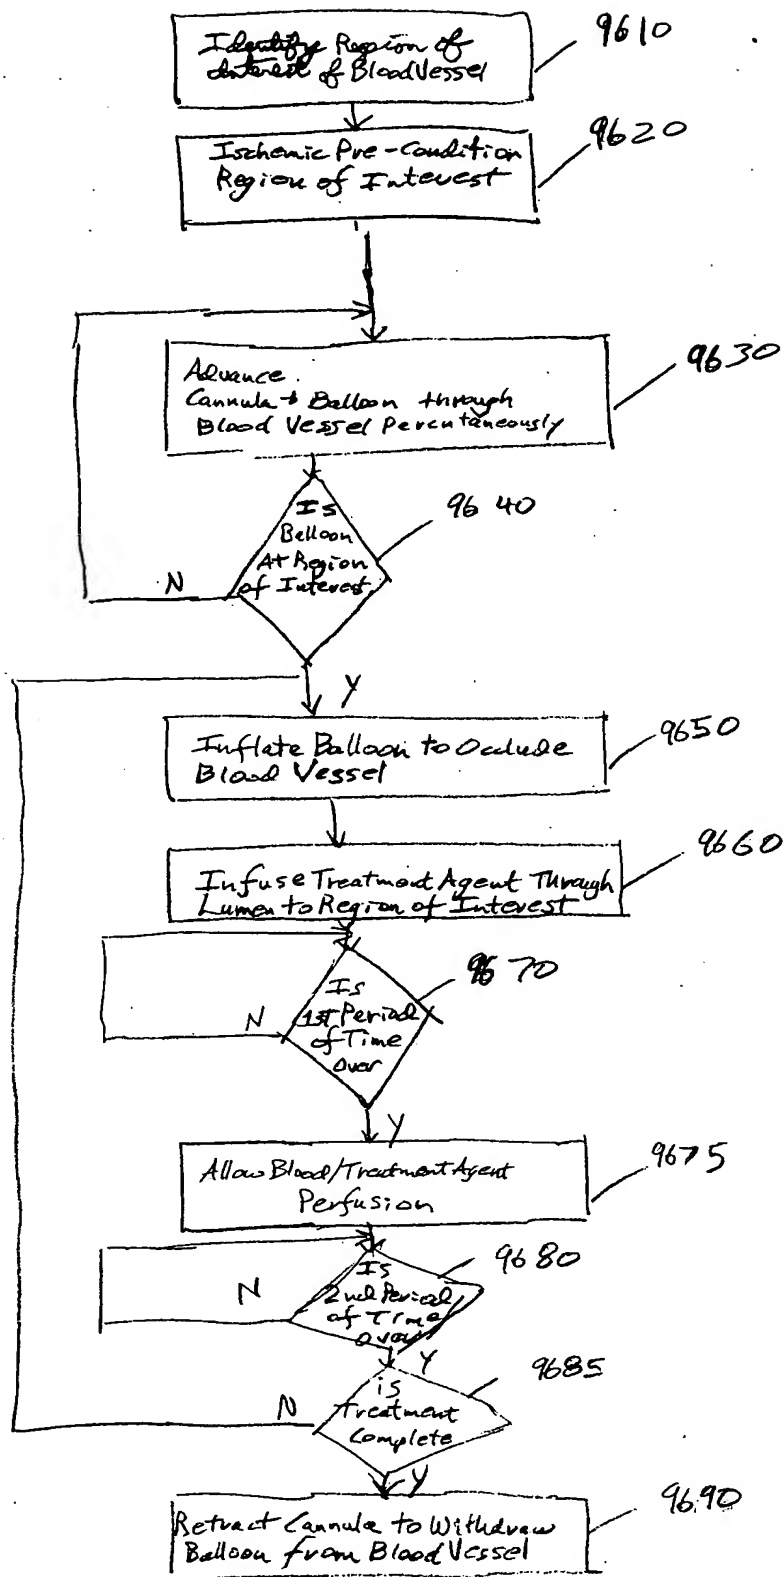 Identify Region of
Interest of Blood Vessel
9610
Ischemic Pre-Condition
Region of Interest
9620
Advance
Cannula + Balloon through
Blood Vessel Percutaneously
9630
Is
Balloon
At Region
of Interest
9640
N
Y
Inflate Balloon to Occlude
Blood Vessel
9650
Infuse Treatment Agent Through
Lumen to Region of Interest
9660
Is
1st Period
of Time
Over
9670
N
Y
Allow Blood/Treatment Agent
Perfusion
9675
Is
2nd Period
of Time
over
9680
N
Y
is
Treatment
Complete
9685
N
Y
Retract Cannula to Withdraw
Balloon from Blood Vessel
9690